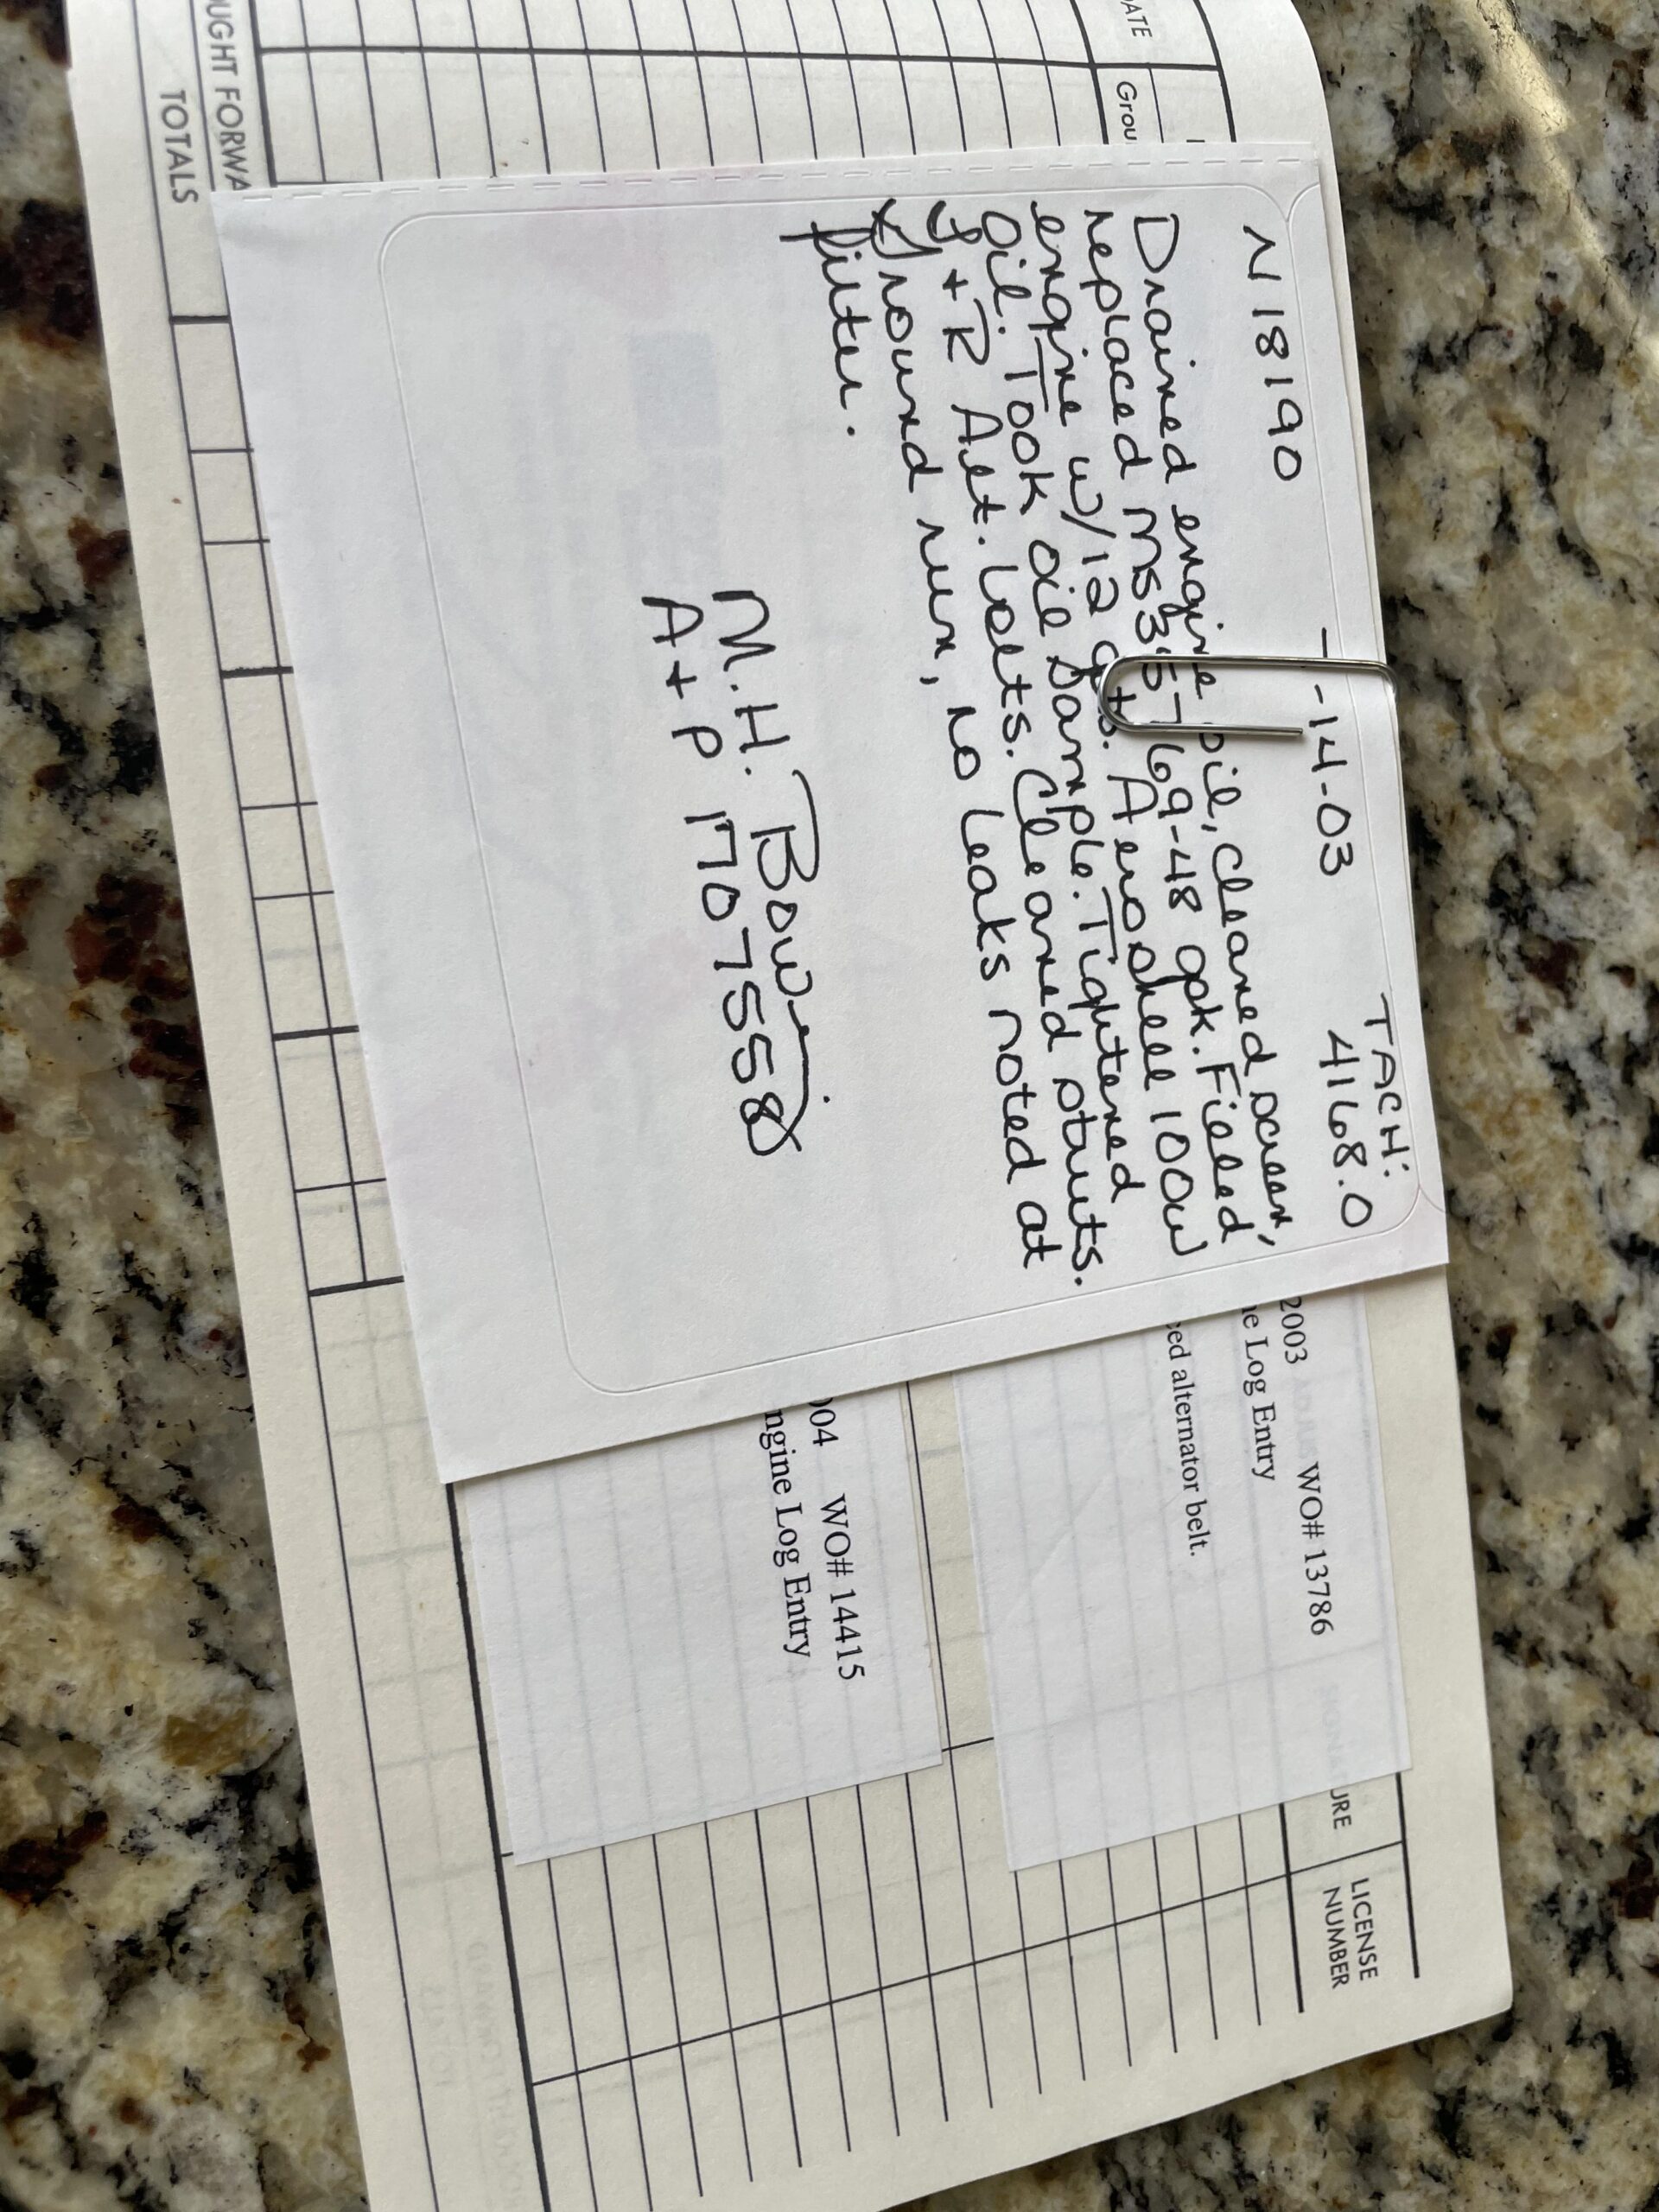 DATE
Grou
N18190 -14-03 TACH: 4168.0
Drained engine oil, cleaned screen,
replaced MS35769-48 gsk. Filled
engine w/12 qts. Aeroshell 100w
oil. Took oil sample. Tightened
L+R Alt. bolts. Cleaned struts.
Ground run, no leaks noted at
filter.
M.H.
A+P 1707558
2003 WO# 13786
ne Log Entry
ced alternator belt.
004 WO# 14415
ngine Log Entry
URE
LICENSE
NUMBER
OUGHT FORWA
TOTALS